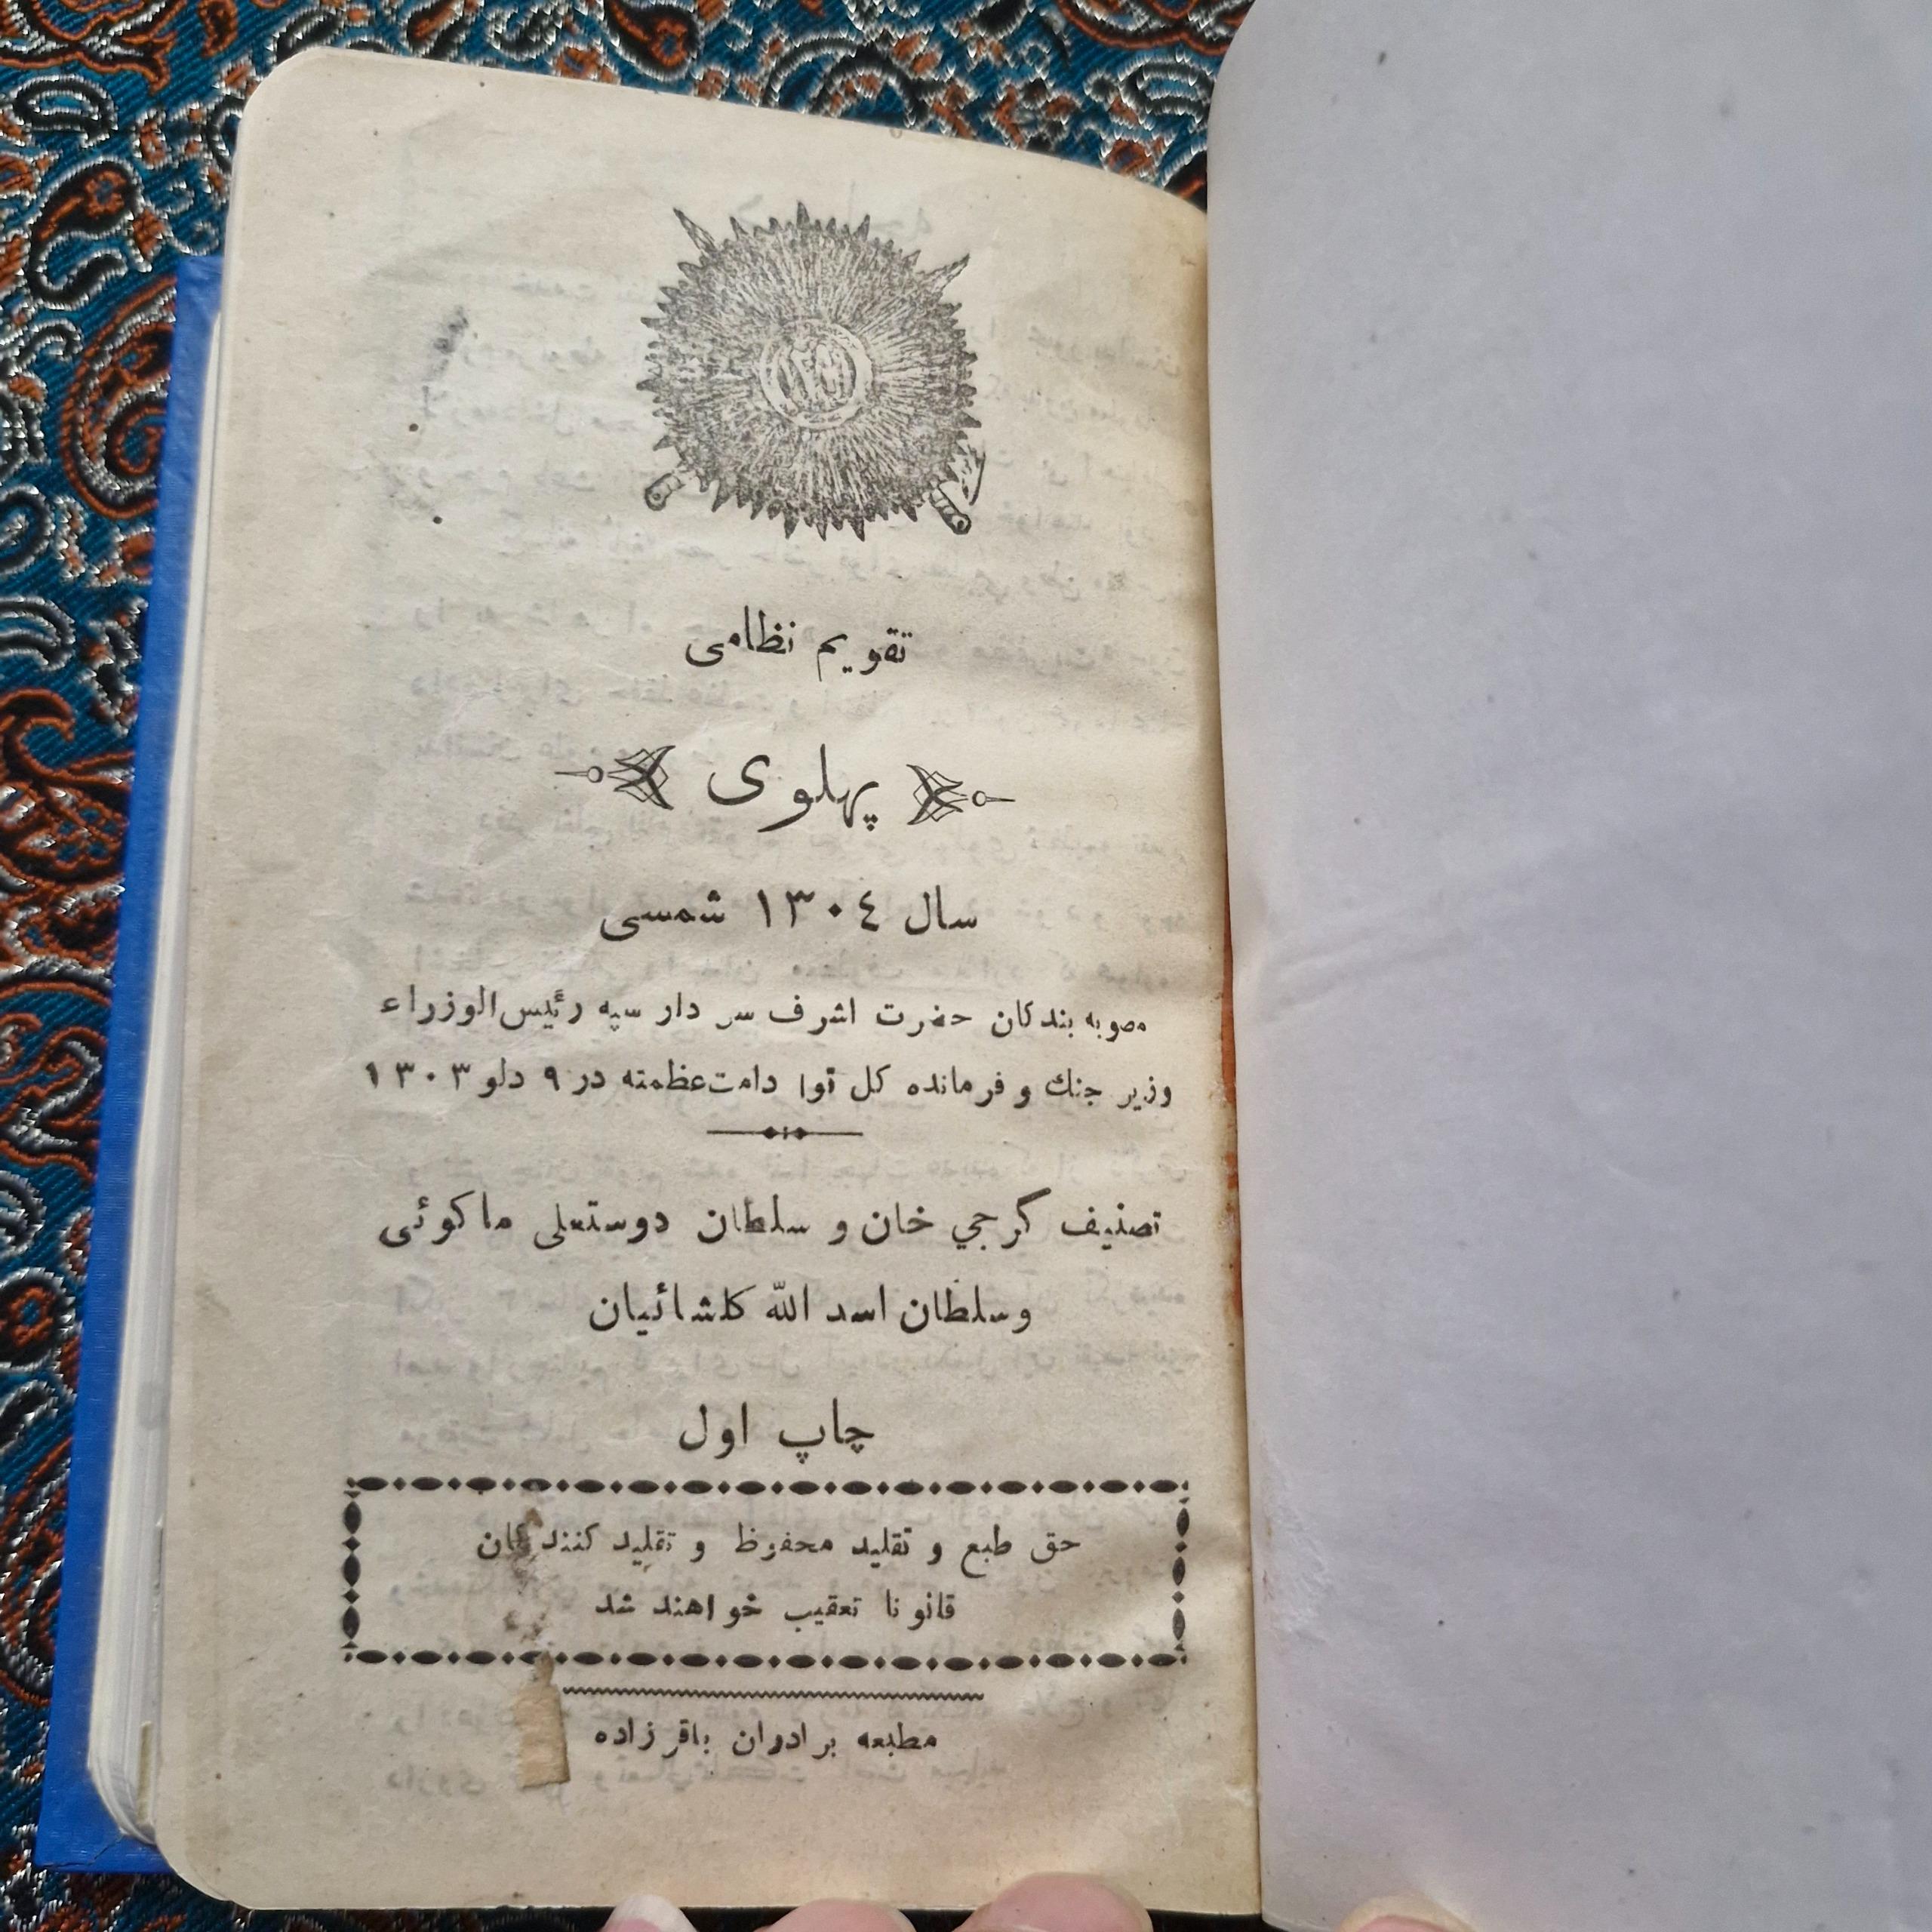 تقویم نظامی
پهلوی
سال ۱۳۰٤ شمسی
مصوبه بندکان حضرت اشرف سر دار سپه رئیس الوزراء
وزیر جنك و فرمانده کل قوا دامت عظمته در ۹ دلو ۱۳۰۳
تصنیف گرجي خان و سلطان دوستعلی ماکوئی
و سلطان اسد الله کلشائیان
چاپ اول
حق طبع و تقلید محفوظ و تقلید کنندکان
قانونا تعقیب خواهند شد
مطبعه برادران باقرزاده